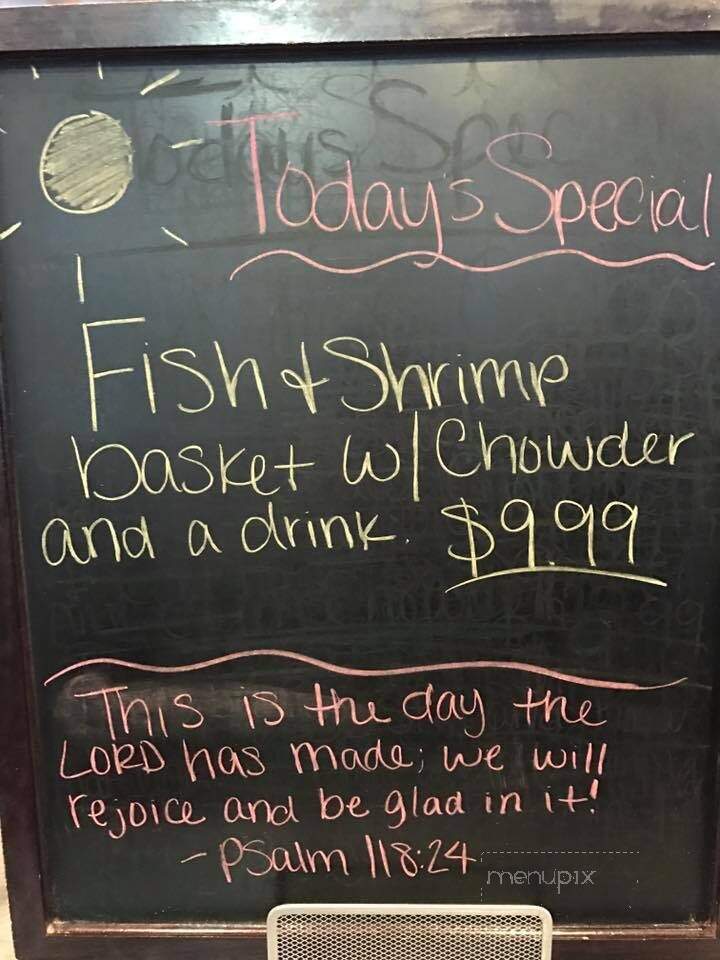 Today's Special
Fish & Shrimp
basket w/ Chowder
and a drink. $9.99
This is the day the
LORD has made; we will
rejoice and be glad in it!
- Psalm 118:24
menupix